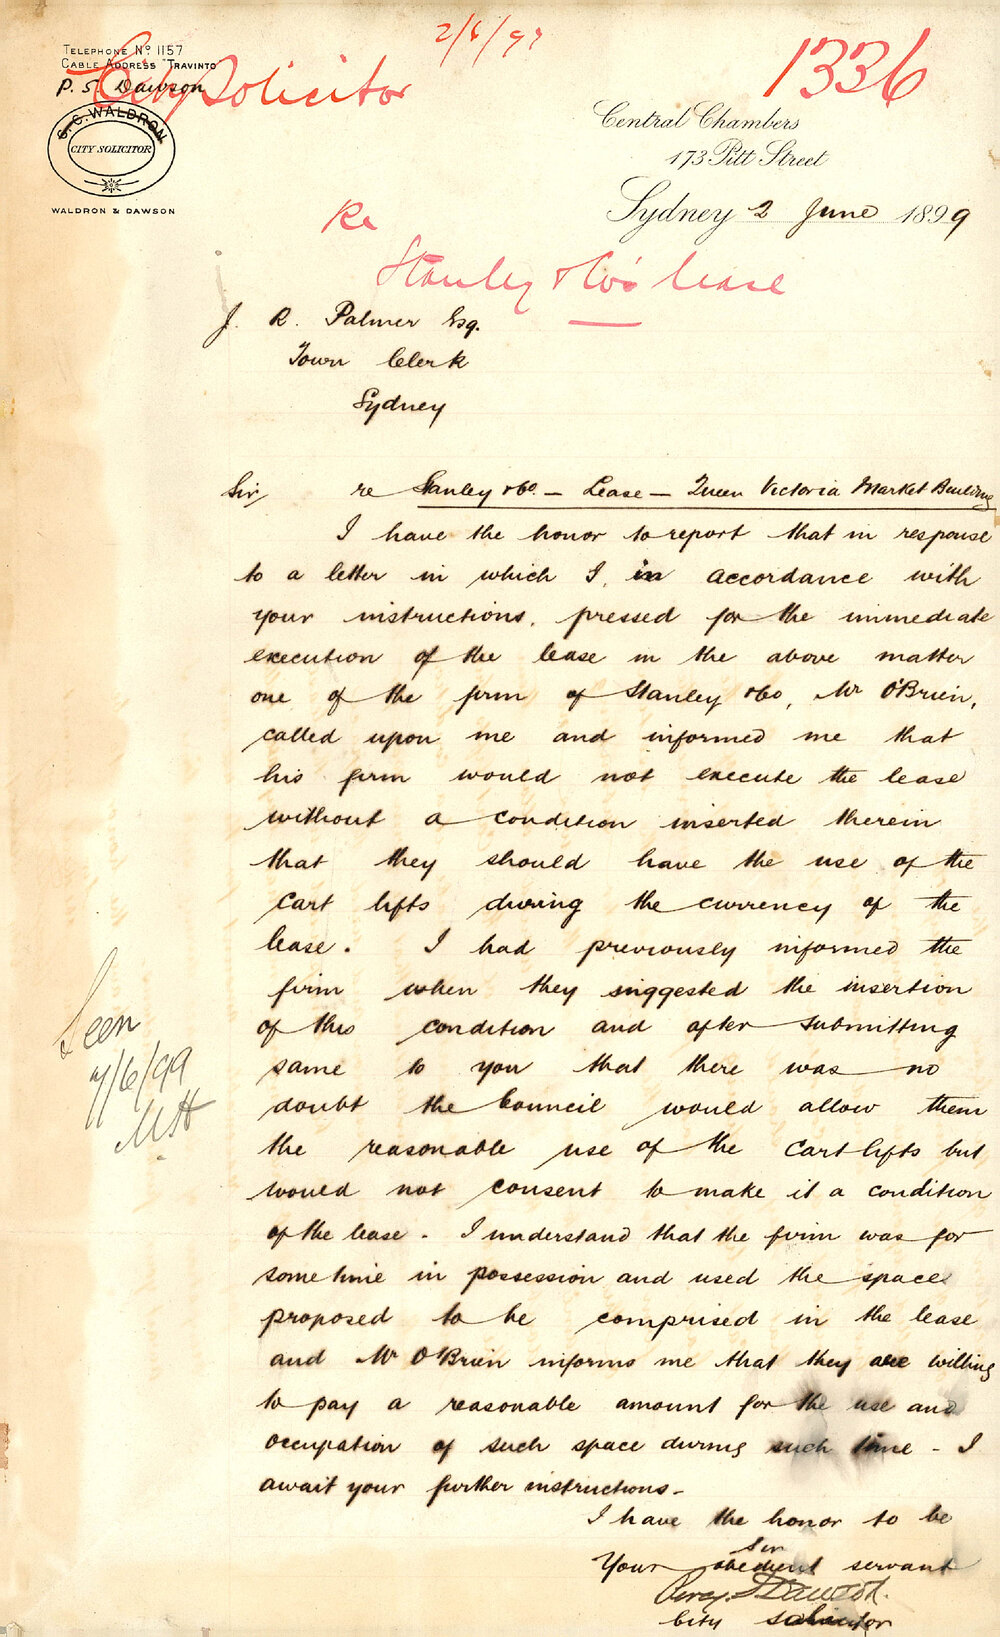 2/6/99
1336
City Solicitor
TELEPHONE No 1157
CABLE ADDRESS "TRAVINTO
P. S. Dawson
S. C. WALDRON
CITY SOLICITOR
WALDRON & DAWSON
Central Chambers
173 Pitt Street
Sydney 2 June 1899
Re
Stanley & Co's lease
J. R. Palmer Esq.
Town Clerk
Sydney
Sir re Stanley & Co. - Lease - Queen Victoria Market Building
I have the honor to report that in response
to a letter in which I, in accordance with
your instructions, pressed for the immediate
execution of the lease in the above matter
one of the firm of Stanley & Co, Mr O'Brien,
called upon me and informed me that
his firm would not execute the lease
without a condition inserted therein
that they should have the use of the
cart lifts during the currency of the
lease. I had previously informed the
firm when they suggested the insertion
of this condition and after submitting
same to you that there was no
doubt the Council would allow them
the reasonable use of the cart lifts but
would not consent to make it a condition
of the lease. I understand that the firm was for
some time in possession and used the space
proposed to be comprised in the lease
and Mr O'Brien informs me that they are willing
to pay a reasonable amount for the use and
occupation of such space during such time - I
await your further instructions.
I have the honor to be
Sir
Your obedient servant
Percy S Dawson.
City Solicitor
Seen
7/6/99